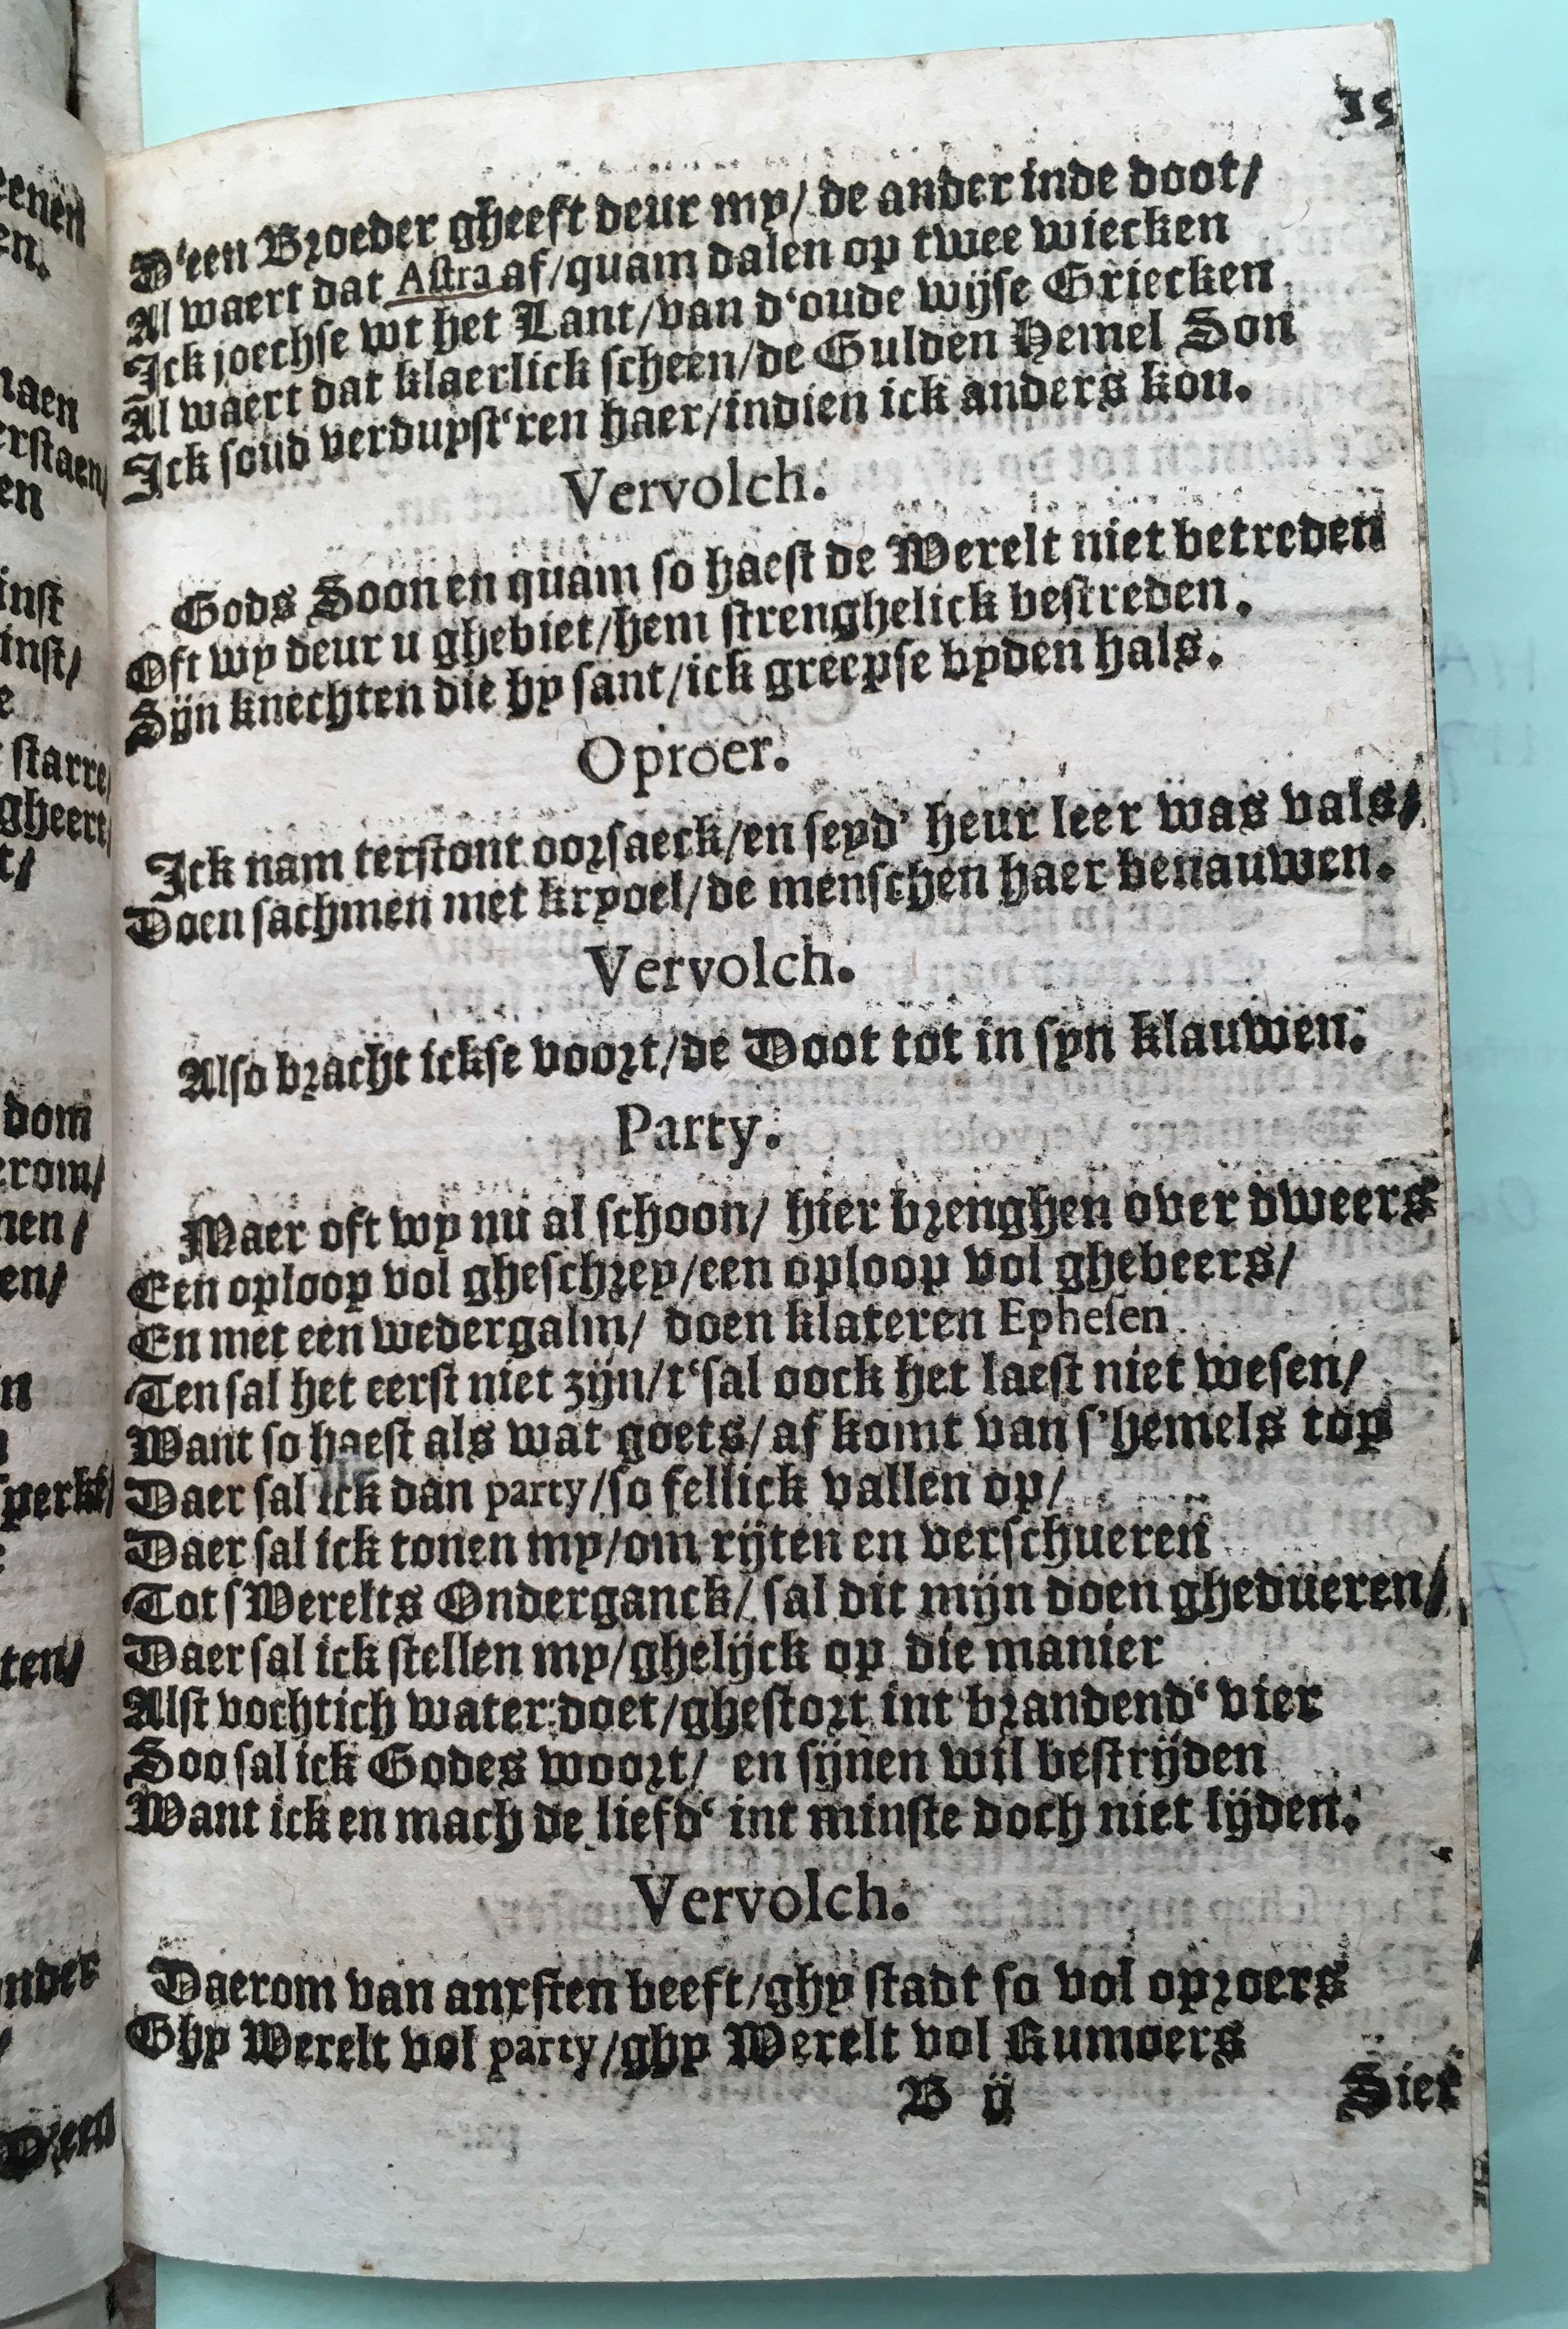 15
D'een Broeder gheeft deur my/ de ander inde doot/
Al waert dat Astra af/quam dalen op twee wiecken
Ick joechse wt het Lant/van d'oude wijse Griecken
Al waert dat klaerlick scheen/de Gulden Hemel Son
Ick soud verduyst'ren haer/indien ick anders kon.
Vervolch.
Gods Soon en quam so haest de Werelt niet betreden
Oft wy deur u ghebiet/hem strenghelick bestreden.
Sijn knechten die hy sant/ick greepse byden hals.
Oproer.
Ick nam terstont oorsaeck/en seyd' heur leer was vals/
Doen sachmen met kryoel/de menschen haer benauwen.
Vervolch.
Also bracht ickse voort/de Doot tot in syn klauwen.
Party.
Maer oft wy nu al schoon/ hier brenghen over dweers
Een oploop vol gheschrey/een oploop vol ghebeers/
En met een wedergalm/ doen klateren Ephesen
Ten sal het eerst niet zijn/t'sal oock het laest niet wesen/
Want so haest als wat goets/af komt van s'hemels top
Daer sal ick dan party/so fellick vallen op/
Daer sal ick tonen my/om rijten en verschueren
Tot sWerelts Onderganck/ sal dit mijn doen ghedueren/
Daer sal ick stellen my/ghelijck op die manier
Alst vochtich water doet/ghestort int brandend' vier
Soo sal ick Godes woort/ en sijnen wil bestrijden
Want ick en mach de liefd' int minste doch niet lijden.
Vervolch.
Daerom van anxsten beeft/ghy stadt so vol oproers
Ghy Werelt vol party/ghy Werelt vol Rumoers
B ij Siet